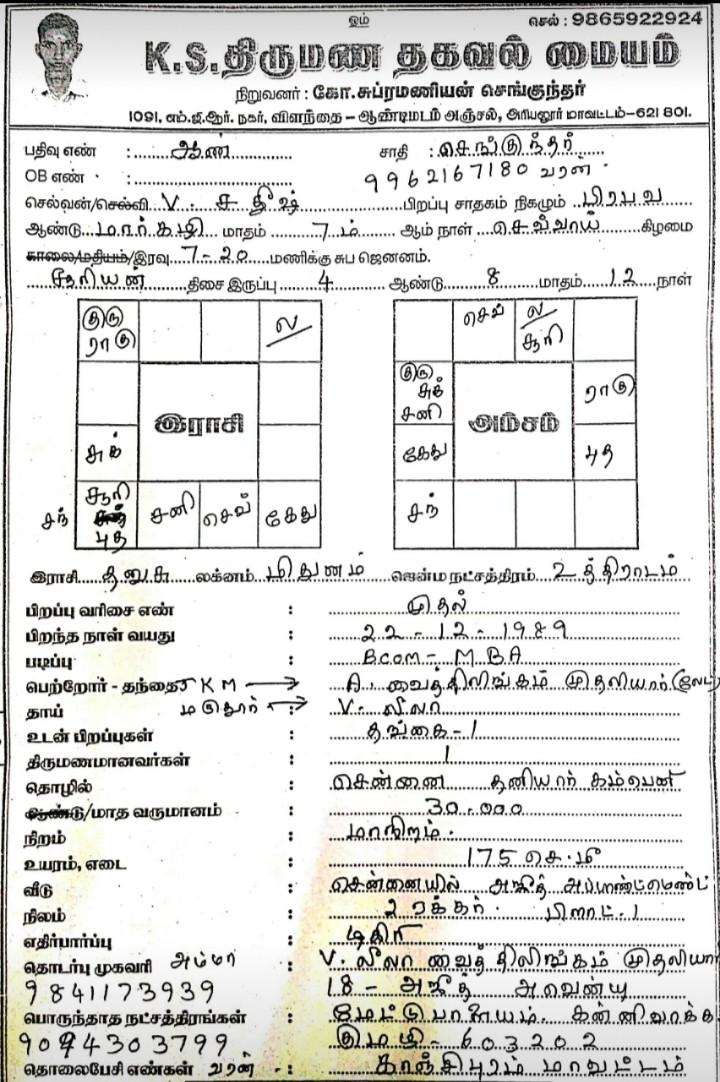 ஓம்
செல் : 9865922924
K.S.திருமண தகவல் மையம்
நிறுவனர் : கோ.சுப்ரமணியன் செங்குந்தர்
1091, எம்.ஜி.ஆர். நகர், விளந்தை – ஆண்டிமடம் அஞ்சல், அரியலூர் மாவட்டம்–621 801.
பதிவு எண் : ஆண் சாதி : செங்குந்தர்
OB எண் : 9962167180 வரன்
செல்வன்/செல்வி V. சதீஷ் பிறப்பு சாதகம் நிகழும் பிரபவ
ஆண்டு மார்கழி மாதம் 7ம் ஆம் நாள் செவ்வாய் கிழமை
காலை/மதியம்/இரவு 7-20 மணிக்கு சுப ஜெனனம்.
சூரியன் திசை இருப்பு 4 ஆண்டு 8 மாதம் 12 நாள்
குரு ராகு ல
சுக்
இராசி
சந் சூரி புத சனி செவ் கேது
செவ் ல சூரி
குரு சுக் சனி ராகு
அம்சம்
கேது புத
சந்
இராசி தனுசு லக்னம் மிதுனம் ஜென்ம நட்சத்திரம் உத்திராடம்
பிறப்பு வரிசை எண் : முதல்
பிறந்த நாள் வயது : 22-12-1989
படிப்பு : Bcom - MBA
பெற்றோர் - தந்தை JKM → A. வைத்திலிங்கம் முதலியார் (லேட்)
தாய் மடுதூர் → : V. லீலா
உடன் பிறப்புகள் : தங்கை - 1
திருமணமானவர்கள் : 1
தொழில் : சென்னை தனியார் கம்பெனி
ஆண்டு/மாத வருமானம் : 30.000
நிறம் : மாநிறம்.
உயரம், எடை : 175 செ.மீ
வீடு : சென்னையில் அஜீத் அபார்ண்ட்மெண்ட்
நிலம் : 2 ஏக்கர். பிளாட்.1
எதிர்பார்ப்பு : டிகிரி
தொடர்பு முகவரி அம்மா : V. லீலா வைத்திலிங்கம் முதலியார்
9841173939 18 - அஜீத் அவென்யு
பொருந்தாத நட்சத்திரங்கள் : மேட்டுபாளையம். கன்னிவாக்க
9094303799 603202
தொலைபேசி எண்கள் வரன் : காஞ்சிபுரம் மாவட்டம்